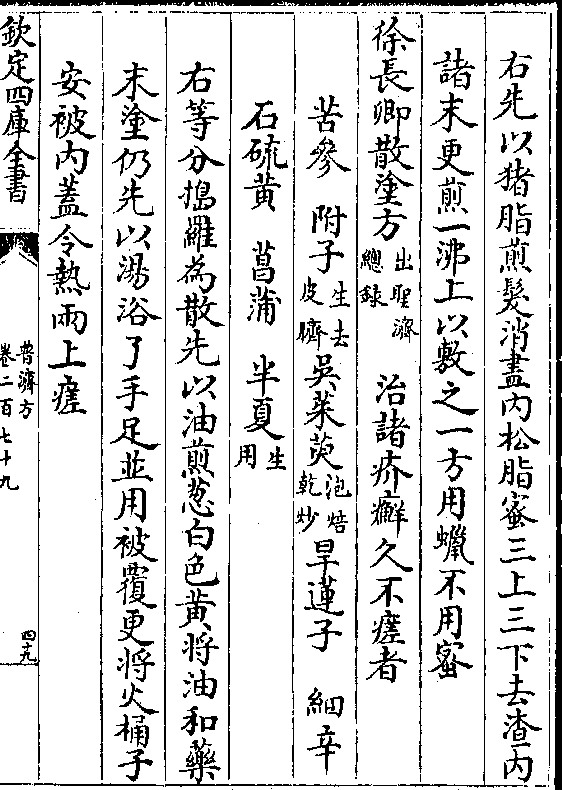 右先以猪脂煎髮消盡内松脂蜜三上三下去渣丙
諸末更煎一沸上以敷之一方用蠟不用蜜
徐長卿散塗方出聖濟總録 治諸疥癬久不瘥者
苦參 附子生去皮臍 吳茱萸泡焙乾炒 旱蓮子 細辛
石硫黄 菖蒲 半夏生用
右等分搗羅為散先以油煎葱白色黄將油和藥
末塗仍先以湯浴了手足並用被覆更將火桶子
安被内蓋令熱兩上瘥
欽定四庫全書
普濟方
卷二百七十九